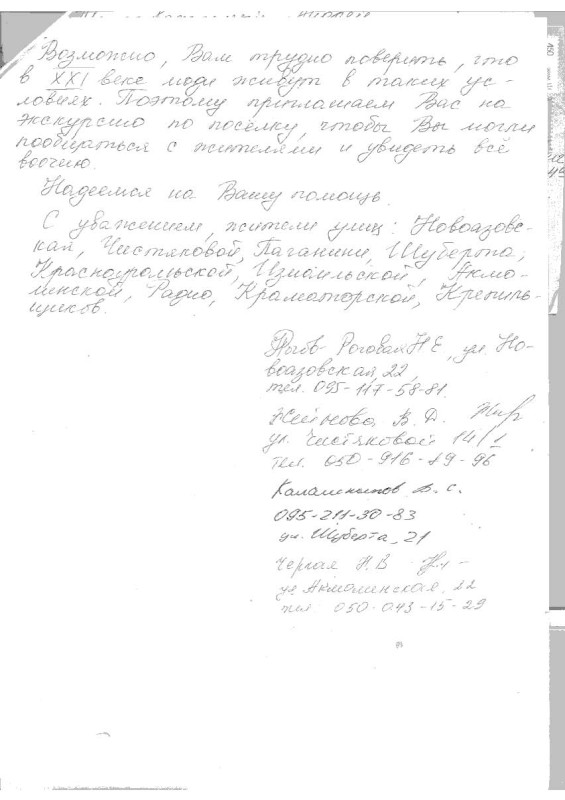 Возможно, Вам трудно поверить, что
в XXI веке люди живут в таких ус-
ловиях. Поэтому приглашаем Вас на
экскурсию по посёлку, чтобы Вы могли
пообщаться с жителями и увидеть всё
воочию.
Надеемся на Вашу помощь.
С уважением, жители улиц: Новоазовс-
кая, Чистяковой, Паганини, Шуберта,
Красноуральской, Измаильской, Акмо-
линской, Радио, Краматорской, Крепиль-
щиков.
Роговая Н Е, ул. Но-
воазовская, 22,
тел. 095-117-58-81.
В. Д.
ул. Чистяковой 14/1
тел. 050-916-19-96
В. С.
095-211-30-83
ул. Шуберта, 21
Черная Н. В
ул Акмолинская, 22
тел 050-043-15-29